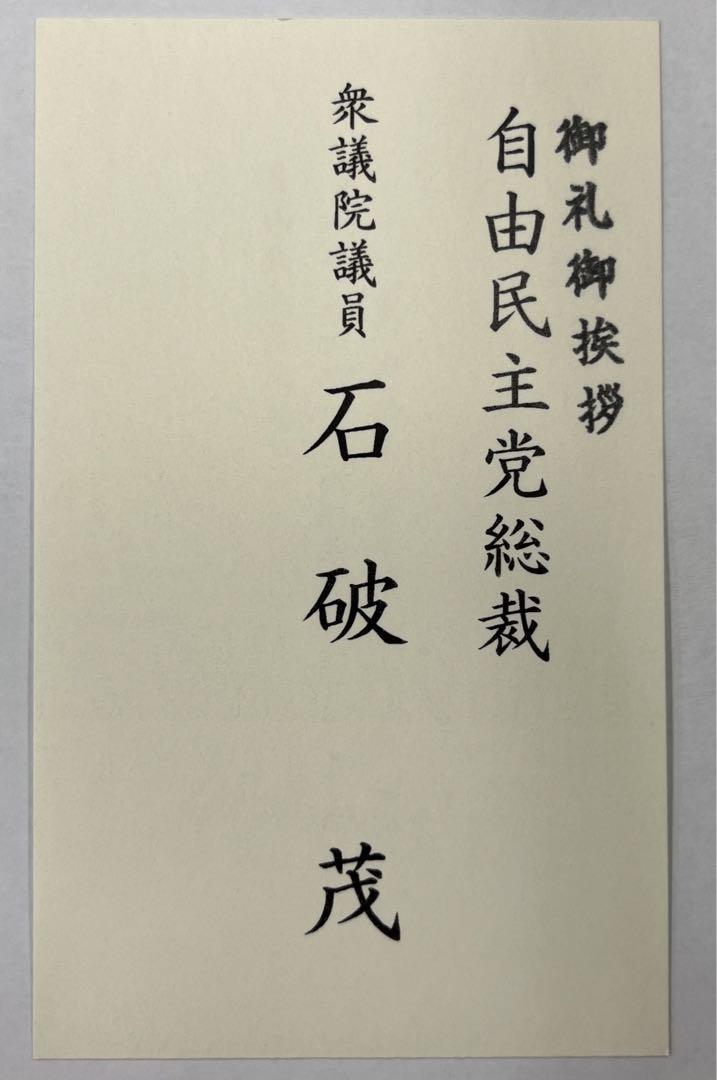 御礼御挨拶
自由民主党総裁
衆議院議員 石破 茂